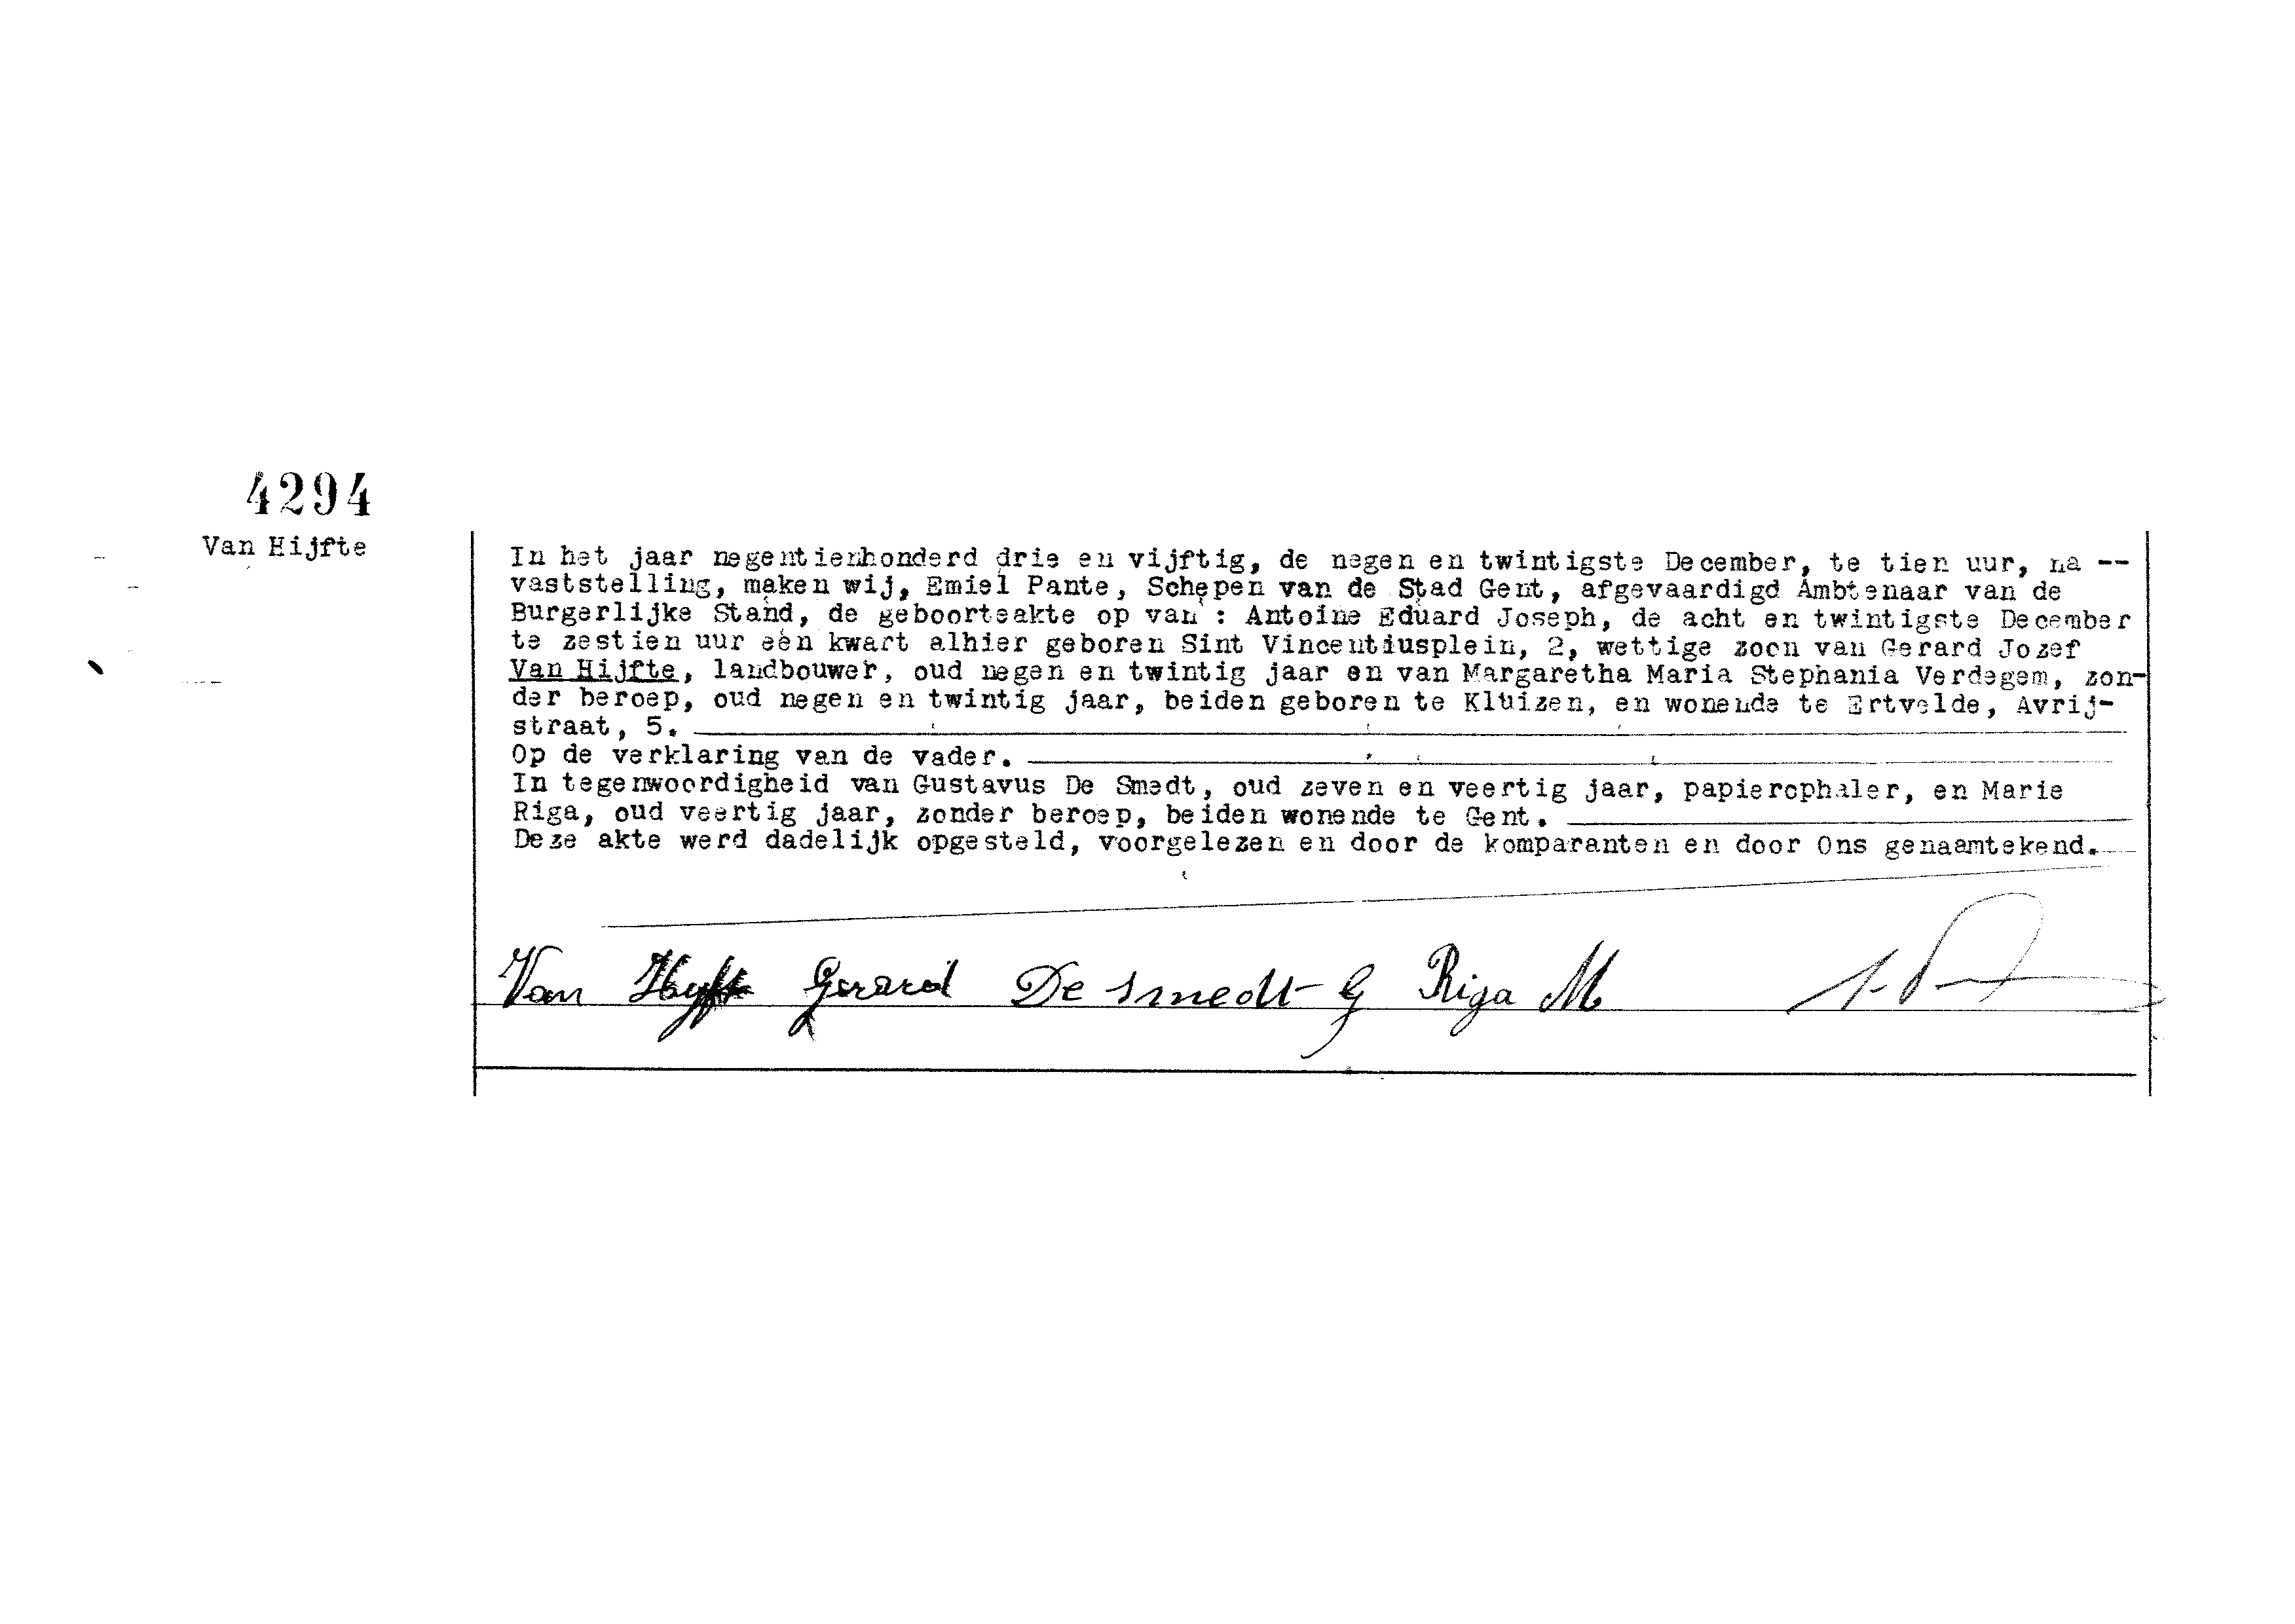 4294
Van Hijfte
In het jaar negentienhonderd drie en vijftig, de negen en twintigste December, te tien uur, na --
vaststelling, maken wij, Emiel Pante, Schepen van de Stad Gent, afgevaardigd Ambtenaar van de
Burgerlijke Stand, de geboorteakte op van : Antoine Eduard Joseph, de acht en twintigste December
te zestien uur een kwart alhier geboren Sint Vincentiusplein, 2, wettige zoon van Gerard Jozef
Van Hijfte, landbouwer, oud negen en twintig jaar en van Margaretha Maria Stephania Verdegem, zon-
der beroep, oud negen en twintig jaar, beiden geboren te Kluizen, en wonende te Ertvelde, Avrij-
straat, 5.
Op de verklaring van de vader.
In tegenwoordigheid van Gustavus De Smedt, oud zeven en veertig jaar, papierophaler, en Marie
Riga, oud veertig jaar, zonder beroep, beiden wonende te Gent.
Deze akte werd dadelijk opgesteld, voorgelezen en door de komparanten en door Ons genaamtekend.
Van Hyfte Gerard De Smedt G Riga M